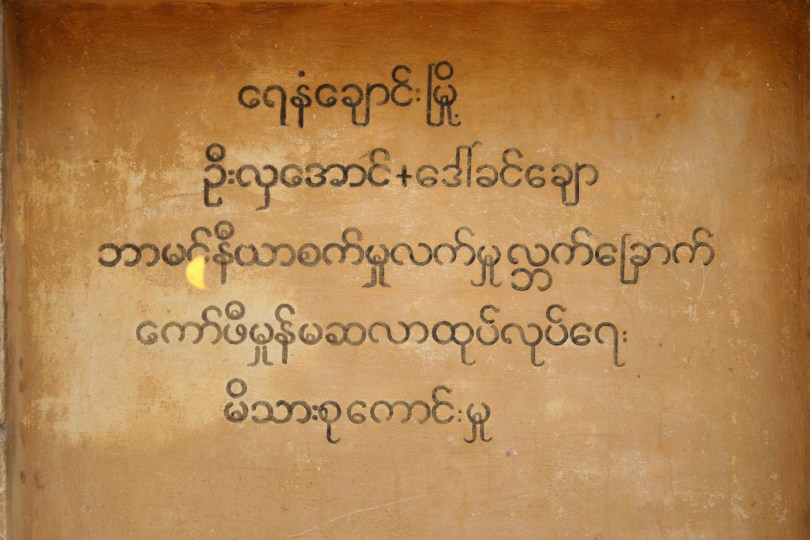 ရေနံချောင်းမြို့
ဦးလှအောင်+ဒေါ်ခင်ချော
ဘာမင်နီယာစက်မှုလက်မှုလ္ဘက်ခြောက်
ကော်ဖီမှုန့်မဆလာထုပ်လုပ်ရေး
မိသားစုကောင်းမှု